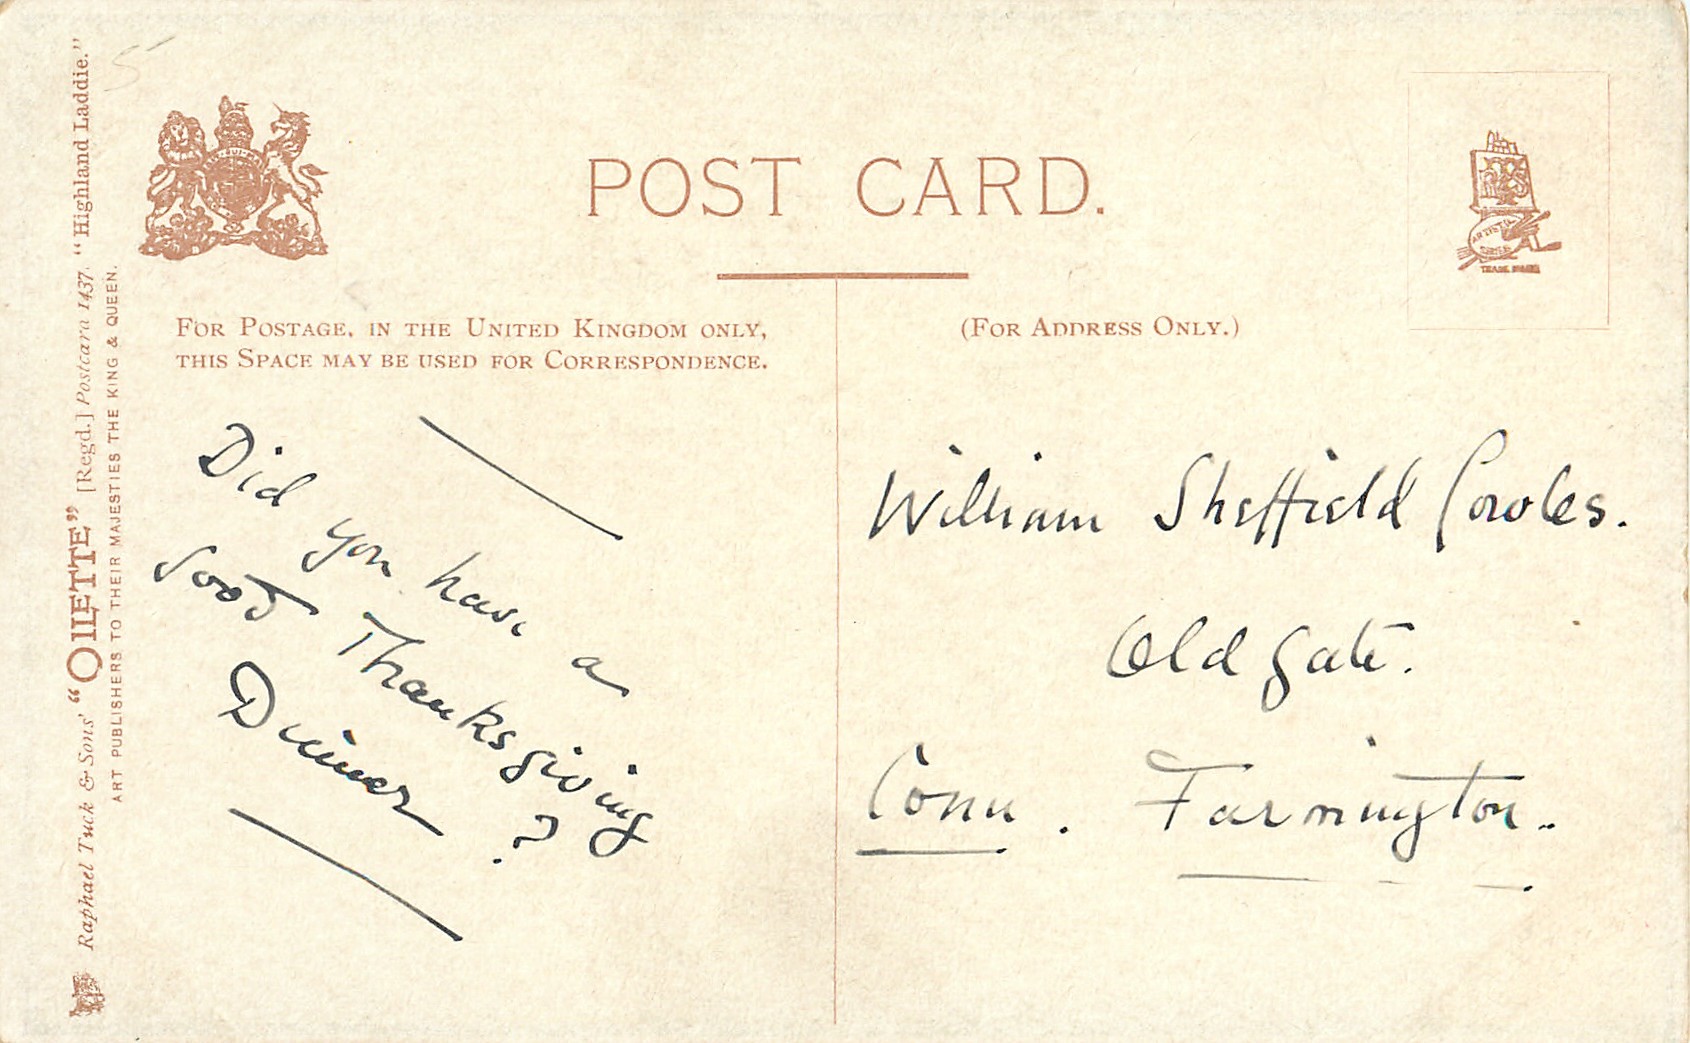 Raphael Tuck & Sons' "OILETTE" [Regd.] Postcard 1437. "Highland Laddie."
ART PUBLISHERS TO THEIR MAJESTIES THE KING & QUEEN.
POST CARD.
FOR POSTAGE, IN THE UNITED KINGDOM ONLY,
THIS SPACE MAY BE USED FOR CORRESPONDENCE.
(FOR ADDRESS ONLY.)
ARTISTIC
SERIES
TRADE MARK
Did you have a
good Thanksgiving
Dinner ?
William Sheffield Cowles.
Old gate.
Conn. Farmington.
5